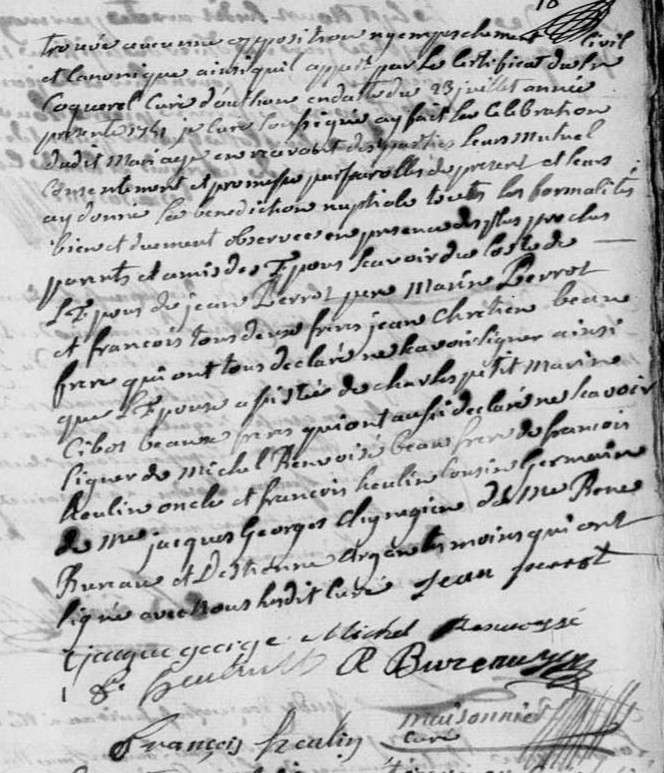 10
trouvée aucune opposition ny empeschement civil
et canonique ainsi quil appert par le certificat du Sr
Coquerel Curé d'authon en datte du 23 juillet année
presente 1741 je Curé soussigné ay fait la Celebration
dudit Mariage en recevant des parties leurs Mutuel
Consentement et promesse par parolles de present et leurs
ay donné la benediction nuptiale toutes les formalités
bien et duement observees en presence des plus proches
parents et amis des Epoux scavoir du costé de
L'Epoux de jean Perrot pere Marin Perrot
et francois tous deux freres jean Chretien beau
frere qui ont tous declaré ne scavoir signer ainsi
que L'Epouse assistée de charles petit Marin
Cibot beaux freres qui ont aussi declaré ne scavoir
signer de Michel Renvoisé beau frere de francois
heulin oncle et francois heulin Cousin Germain
de Me jacques Georges Chyrugien de Me Rene
Bureau et D'Estienne temoins qui ont
signé avec nous susdit Curé Jean perrot
jacque george Michel Renvoysé
R Bureau
François heulin maisonnier
curé